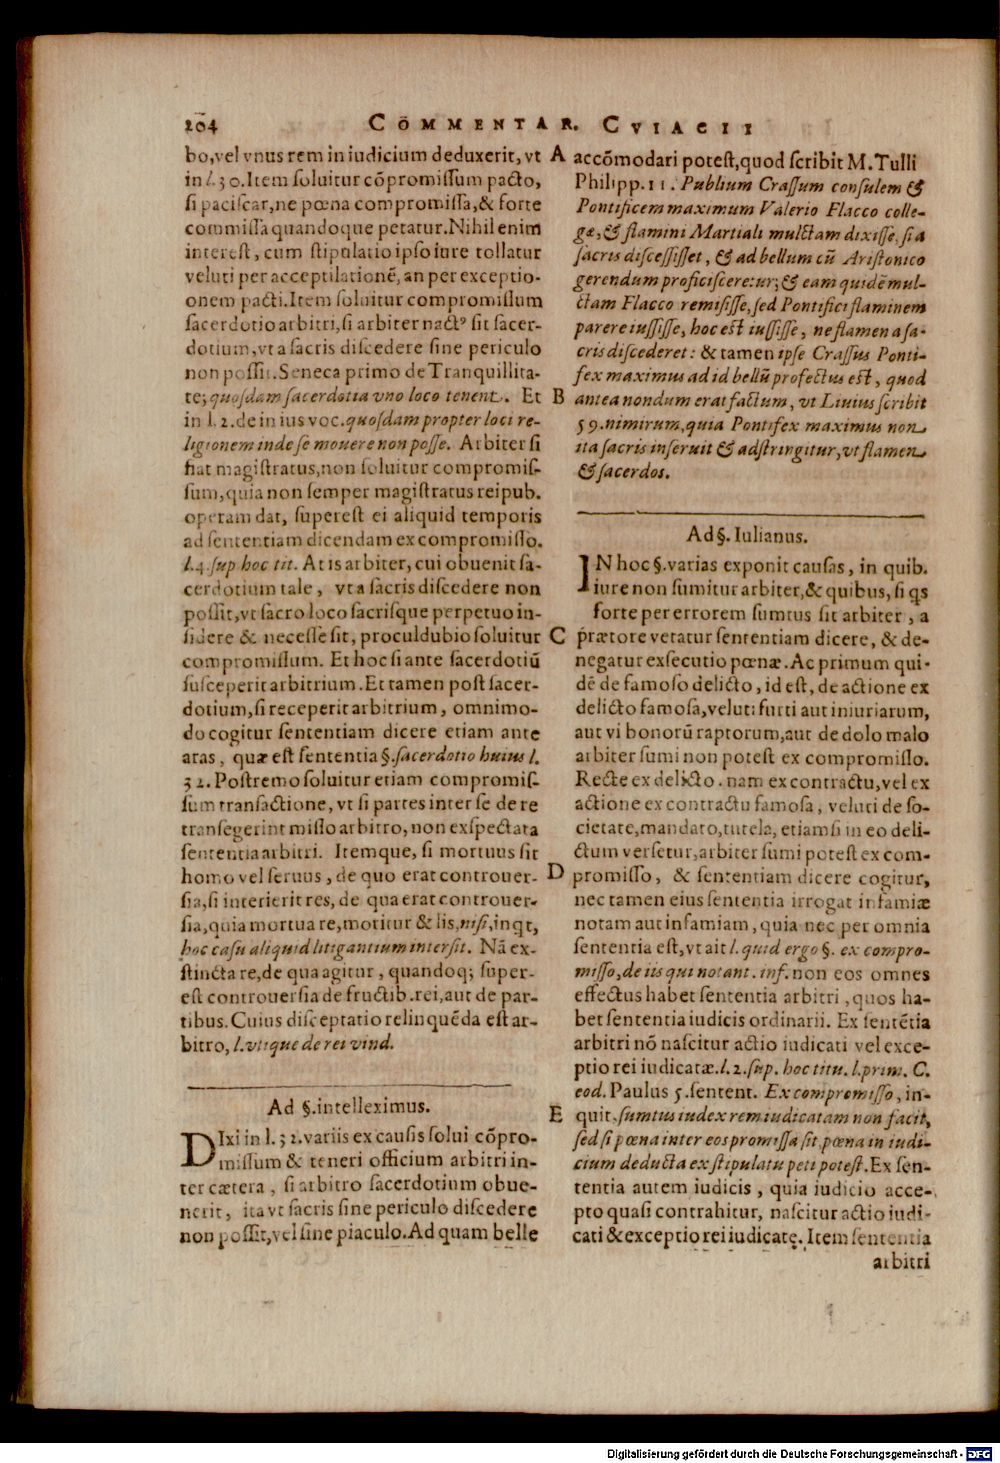 204
COMMENTAR. CVIACII
bo,vel vnus rem in iudicium deduxerit, vt
in l.30. Item soluitur cōpromissum pacto,
si paciscar, ne pœna compromissa, & forte
commissa quandoque petatur. Nihil enim
interest, cum stipulatio ipso iure tollatur
veluti per acceptilationē, an per exceptio-
onem pacti. Item soluitur compromissum
sacerdotio arbitri, si arbiter nactꝰ sit sacer-
dotium, vt a sacris discedere sine periculo
non possit. Seneca primo de Tranquillita-
te; quosdam sacerdotia vno loco tenent. Et
in l. 2. de in ius voc. quosdam propter loci re-
ligionem inde se mouere non posse. Arbiter si
fiat magistratus, non soluitur compromis-
sum, quia non semper magistratus reipub.
operam dat, superest ei aliquid temporis
ad sententiam dicendam ex compromisso.
l.4. sup hoc tit. At is arbiter, cui obuenit sa-
cerdotium tale, vt a sacris discedere non
possit, vt sacro loco sacrisque perpetuo in-
sidere & necesse sit, proculdubio soluitur
compromissum. Et hoc si ante sacerdotiū
susceperit arbitrium. Et tamen post sacer-
dotium, si receperit arbitrium, omnimo-
do cogitur sententiam dicere etiam ante
aras, quæ est sententia §. sacerdotio huius l.
32. Postremo soluitur etiam compromis-
sum transactione, vt si partes inter se de re
transegerint misso arbitro, non exspectata
sententia arbitri. Itemque, si mortuus sit
homo vel seruus, de quo erat controuer-
sia, si interierit res, de qua erat controuer-
sia, quia mortua re, moritur & lis, nisi, inqt,
hoc casu aliquid litigantium intersit. Nā ex-
stincta re, de qua agitur, quandoq; super-
est controuersia de fructib. rei, aut de par-
tibus. Cuius disceptatio relinquēda est ar-
bitro, l. vtique de rei vind.
Ad §. intelleximus.
DIxi in l. 32. variis ex causis solui cōpro-
missum & teneri officium arbitri in-
ter cætera, si arbitro sacerdotium obue-
nerit, ita vt sacris sine periculo discedere
non possit, vel sine piaculo. Ad quam belle
A
B
C
D
E
accōmodari potest, quod scribit M. Tulli
Philipp. 11. Publium Crassum consulem &
Pontificem maximum Valerio Flacco colle-
gæ, & flamini Martiali mulctam dixisse, si a
sacris discessisset, & ad bellum cū Aristonico
gerendum proficisceretur; & eam quidē mul-
ctam Flacco remisisse, sed Pontifici flaminem
parere iussisse, hoc est iussisse, ne flamen a sa-
cris discederet: & tamen ipse Crassus Ponti-
fex maximus ad id bellū profectus est, quod
antea nondum erat factum, vt Liuius scribit
59. nimirum, quia Pontifex maximus non
ita sacris inseruit & adstringitur, vt flamen
& sacerdos.
Ad §. Iulianus.
IN hoc §. varias exponit causas, in quib.
iure non sumitur arbiter, & quibus, si qs
forte per errorem sumtus sit arbiter, a
prætore vetatur sententiam dicere, & de-
negatur exsecutio pœnæ. Ac primum qui-
dē de famoso delicto, id est, de actione ex
delicto famosa, veluti furti aut iniuriarum,
aut vi bonorū raptorum, aut de dolo malo
arbiter sumi non potest ex compromisso.
Recte ex delicto. nam ex contractu, vel ex
actione ex contractu famosa, veluti de so-
cietate, mandato, tutela, etiamsi in eo deli-
ctum versetur, arbiter sumi potest ex com-
promisso, & sententiam dicere cogitur,
nec tamen eius sententia irrogat infamiæ
notam aut infamiam, quia nec per omnia
sententia est, vt ait l. quid ergo §. ex compro-
misso, de iis qui notant. inf. non eos omnes
effectus habet sententia arbitri, quos ha-
bet sententia iudicis ordinarii. Ex sentētia
arbitri nō nascitur actio iudicati vel exce-
ptio rei iudicatæ. l. 2. sup. hoc titu. l. prim. C.
eod. Paulus 5. sentent. Ex compromisso, in-
quit, sumtus iudex rem iudicatam non facit,
sed si pœna inter eos promissa sit, pœna in iudi-
cium deducta ex stipulatu peti potest. Ex sen-
tentia autem iudicis, quia iudicio acce-
pto quasi contrahitur, nascitur actio iudi-
cati & exceptio rei iudicatę. Item sententia
arbitri
Digitalisierung gefördert durch die Deutsche Forschungsgemeinschaft - DFG